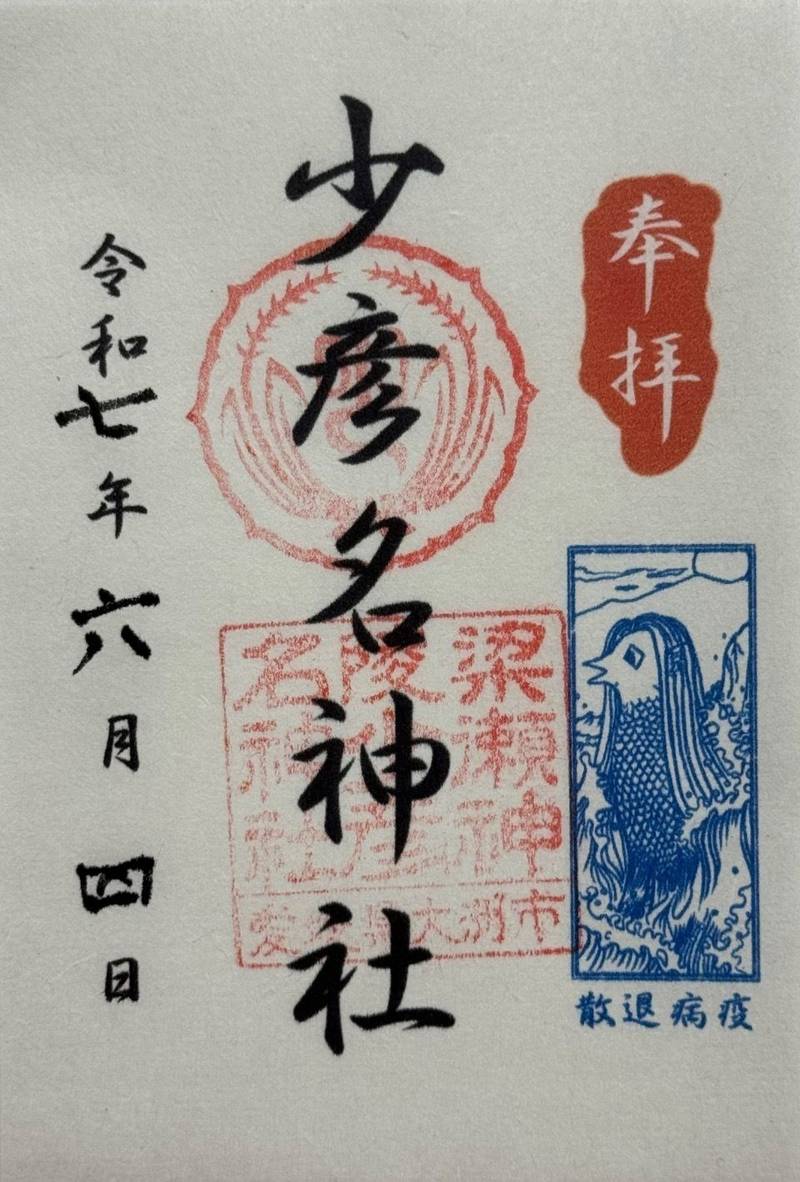 奉拝
疫病退散
少彦名神社
梁瀬神
陵少彦
名神社
愛媛県大洲市
令和七年六月四日